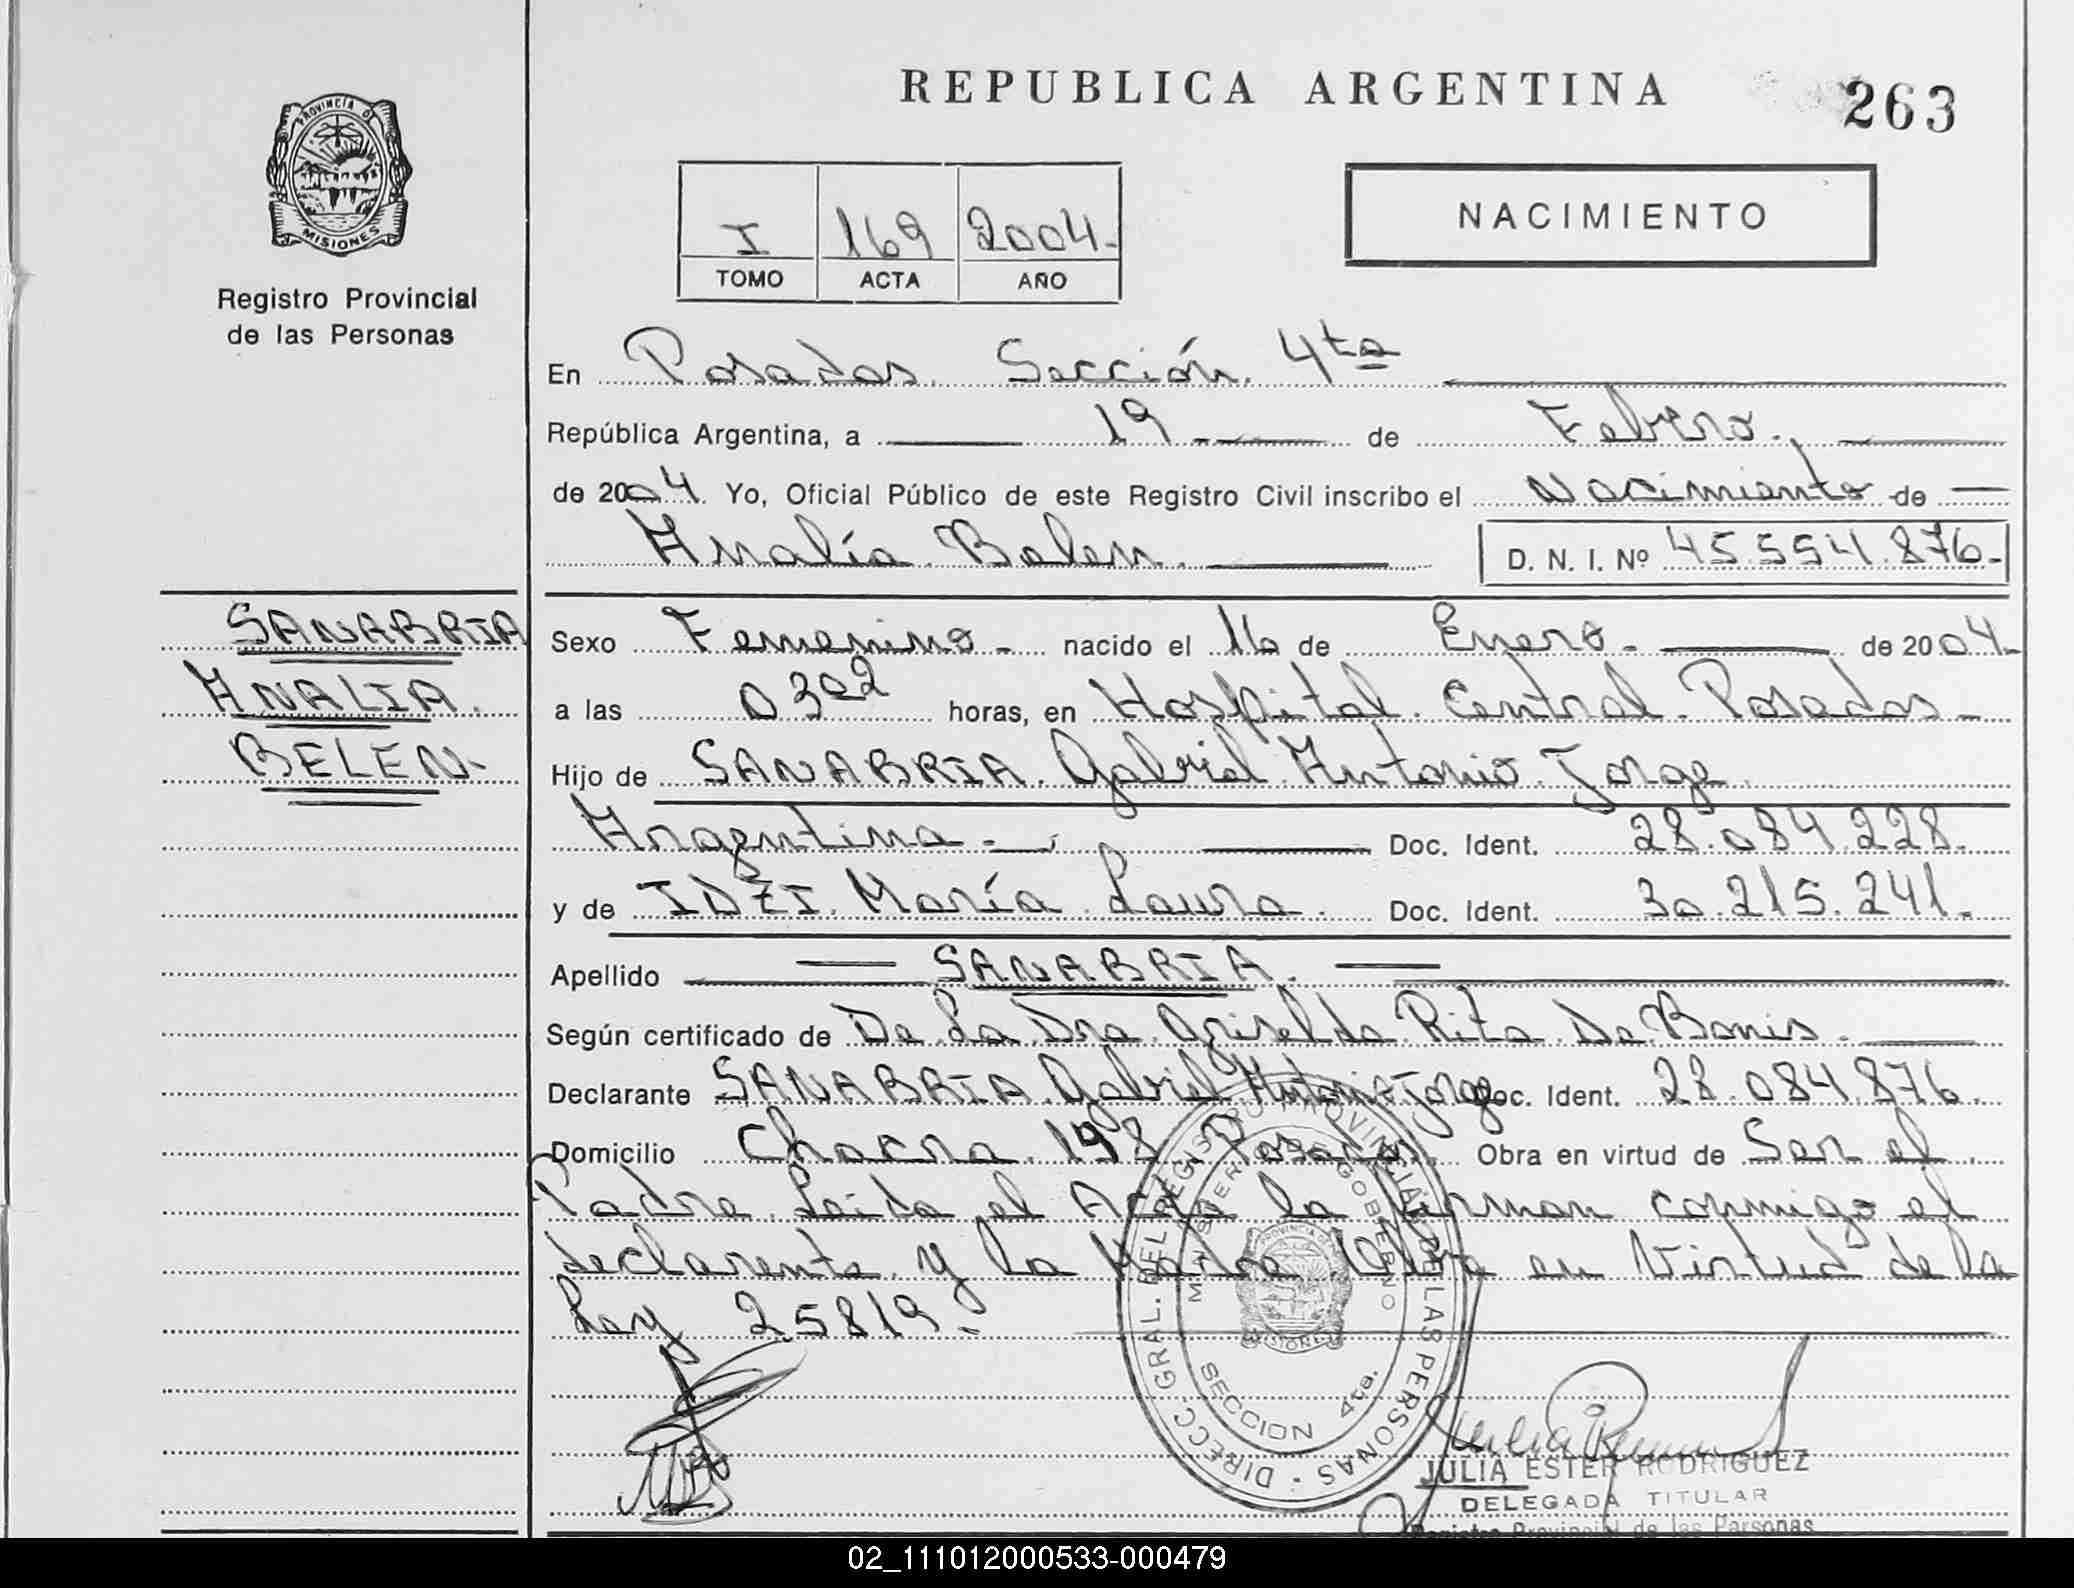 REPUBLICA ARGENTINA
263
PROVINCIA DE
MISIONES
Registro Provincial
de las Personas
I 169 2004.-
TOMO ACTA AÑO
NACIMIENTO
En Posadas. Sección. 4ta
República Argentina, a 19 de Febrero.,
de 2004. Yo, Oficial Público de este Registro Civil inscribo el Nacimiento de
Analía Belen. D. N. I. Nº 45.554.876.-
SANABRIA
ANALIA.
BELEN.-
Sexo Femenino.- nacido el 16 de Enero. de 2004.-
a las 0302 horas, en Hospital. Central. Posadas.-
Hijo de SANABRIA. Gabriel Antonio Jorge.
Argentina.- Doc. Ident. 28.084.228.
y de IDZI. María Laura. Doc. Ident. 30.215.241.
Apellido SANABRIA.
Según certificado de De La Dra. Griselda Rita De Bonis.
Declarante SANABRIA. Gabriel Antonio Jorge Doc. Ident. 28.084.876.
Domicilio Chacra. 198. Posadas. Obra en virtud de Ser el
Padre. Leida el Acta la Firman conmigo el
declarente. y la Madre. Obra en Virtud de la
Ley 25819.-
DIRECC. GRAL. DEL REGISTRO PROVINCIAL DE LAS PERSONAS
MINISTERIO DE GOBIERNO
PROVINCIA DE
MISIONES
SECCION 4ta.
JULIA ESTER RODRIGUEZ
DELEGADA TITULAR
Registro Provincial de las Personas
02_111012000533-000479